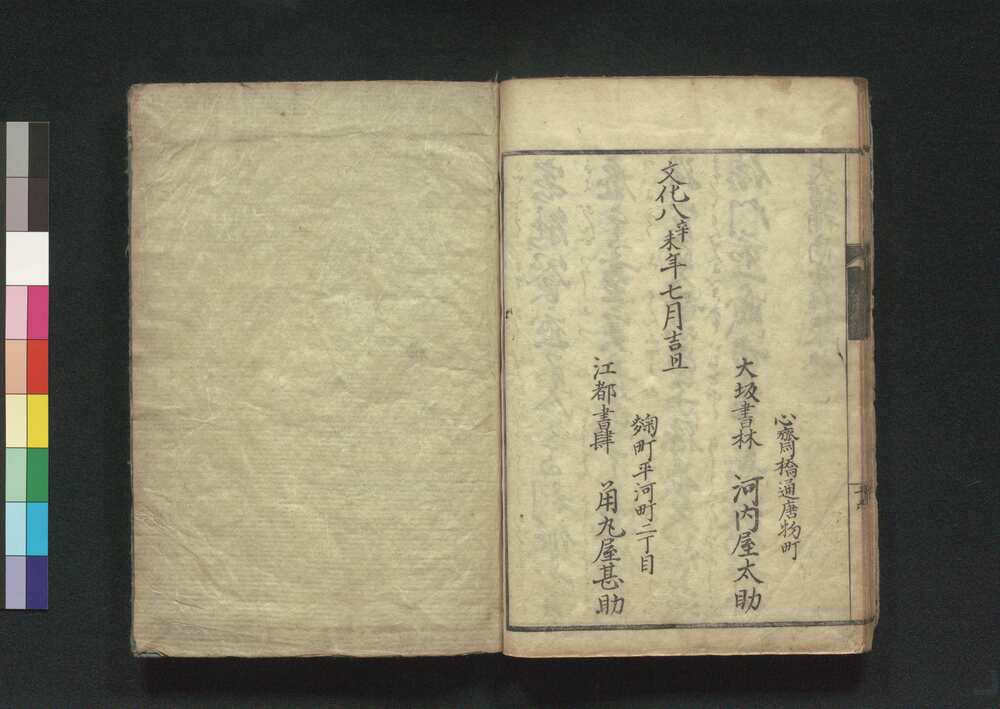 心齋橋通唐物町
大坂書林 河内屋太助
文化八辛未年七月吉旦
麹町平河町二丁目
江都書肆 角丸屋甚助